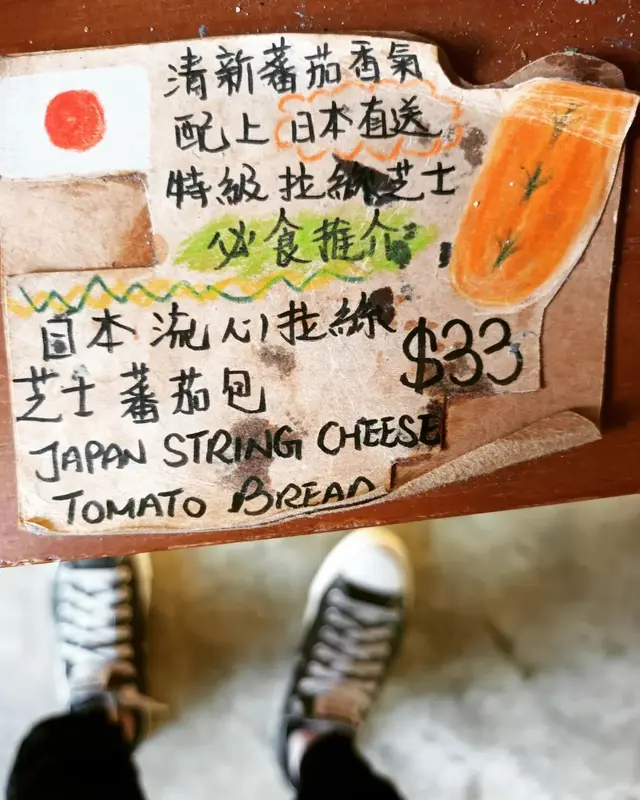 清新蕃茄香氣
配上日本直送
特級拉絲芝士
必食推介
日本流心拉絲
$33
芝士蕃茄包
JAPAN STRING CHEESE
TOMATO BREAD